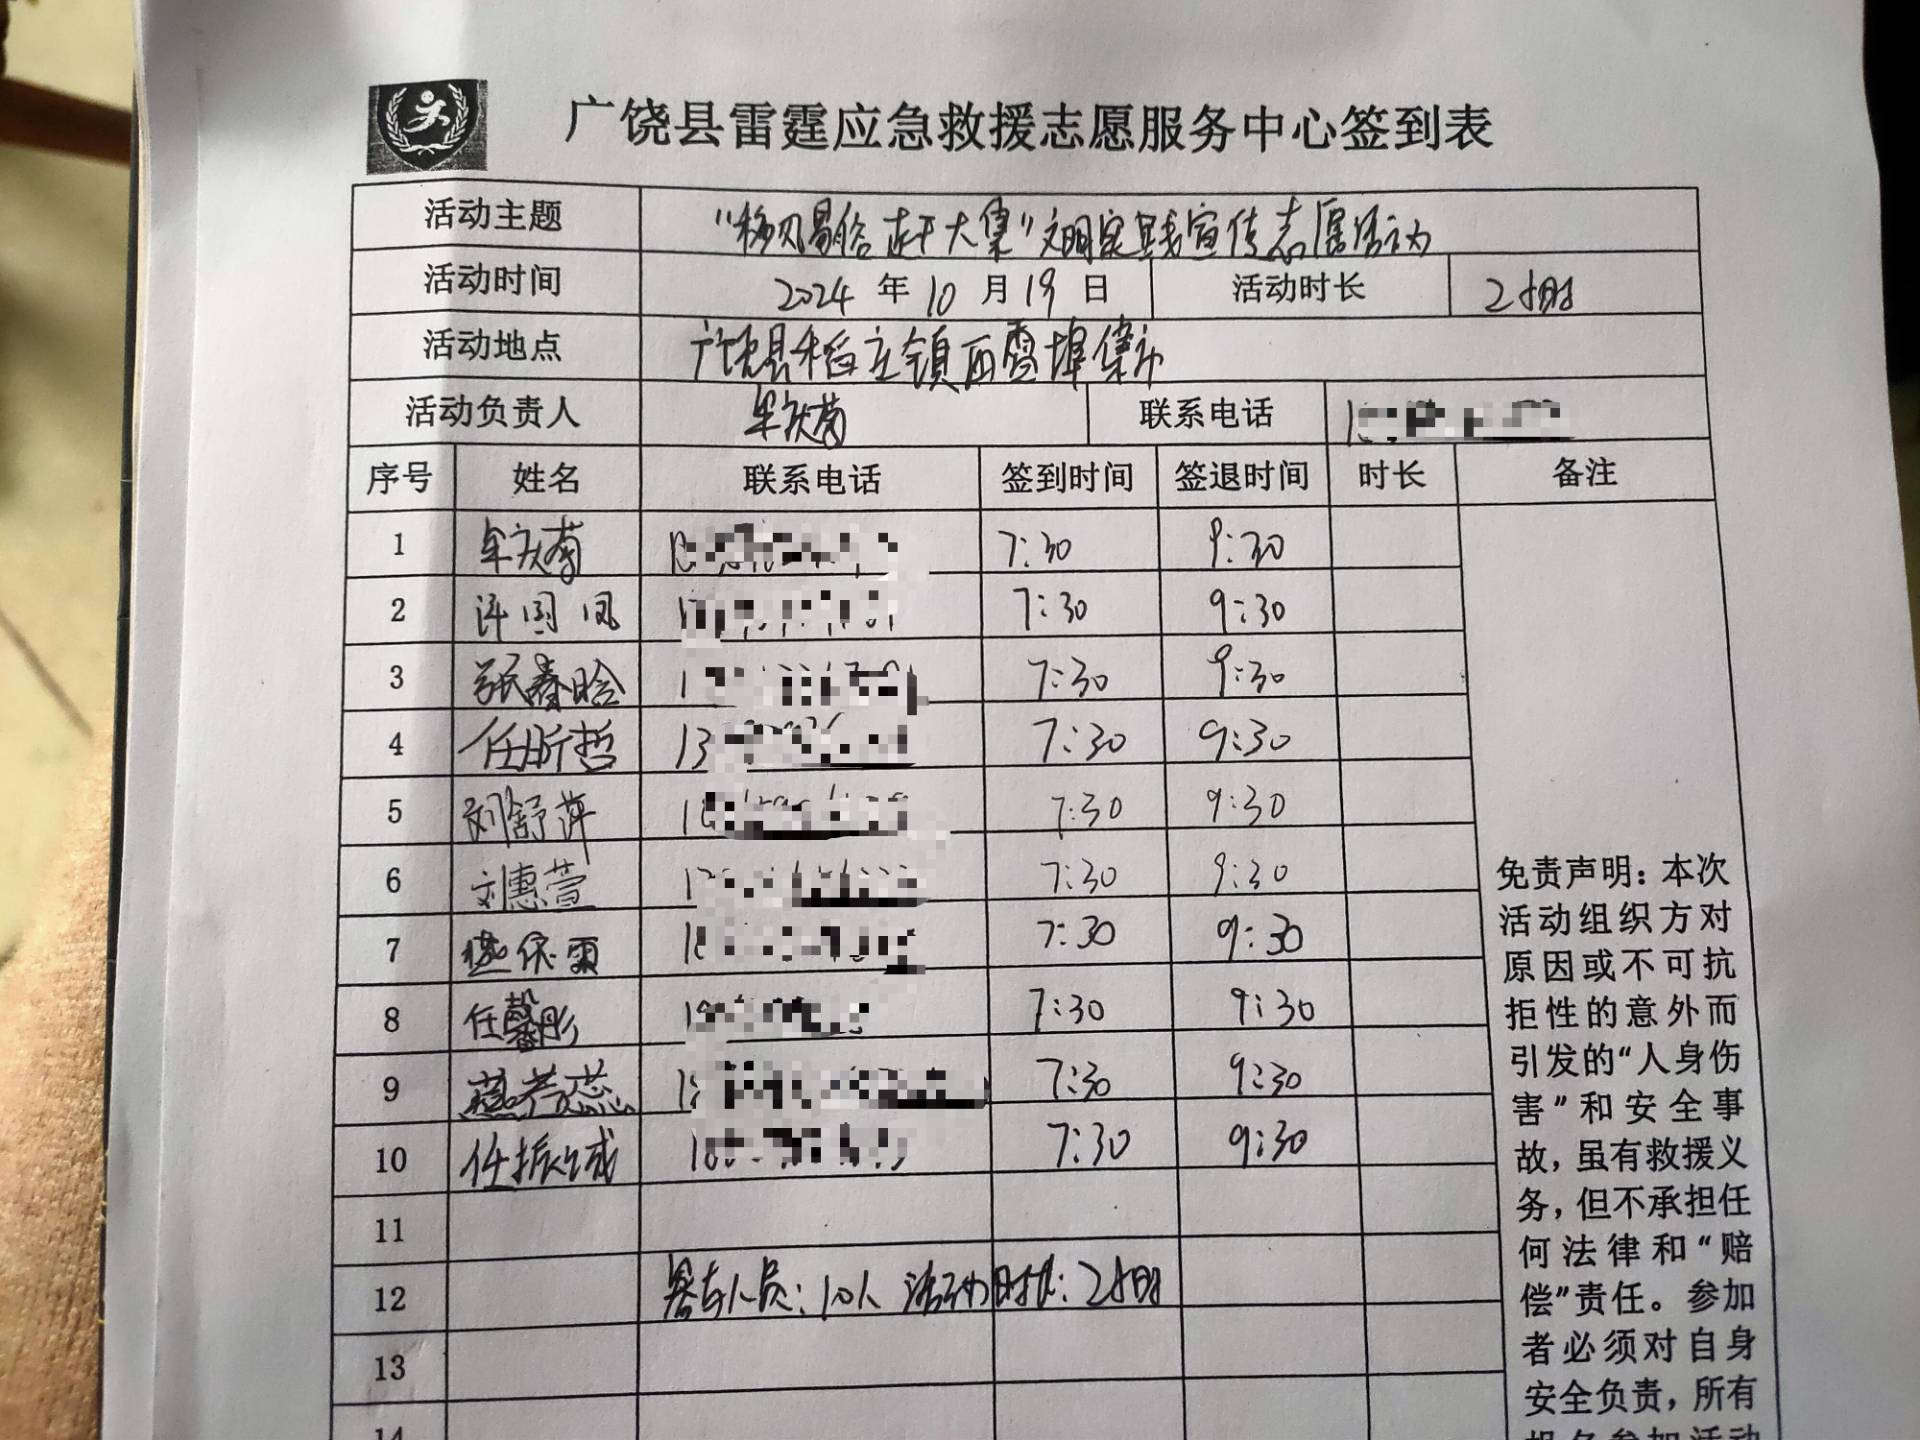 广饶县雷霆应急救援志愿服务中心签到表
活动主题 “移风易俗赶大集”文明实践宣传志愿活动
活动时间 2024 年 10 月 19 日 活动时长 2小时
活动地点 广饶县稻庄镇西雷埠集市
活动负责人 牟庆菊 联系电话
序号 姓名 联系电话 签到时间 签退时间 时长 备注
1 牟庆菊 7:30 9:30
2 许国凤 7:30 9:30
3 张春晗 7:30 9:30
4 任昕哲 13 7:30 9:30
5 刘舒萍 7:30 9:30
6 刘惠萱 7:30 9:30
7 7:30 9:30
8 任馨彤 7:30 9:30
9 燕芳蕊 7:30 9:30
10 任振城 7:30 9:30
11
12 参与人员:10人 活动时长:2小时
13
14
免责声明:本次
活动组织方对
原因或不可抗
拒性的意外而
引发的“人身伤
害”和安全事
故,虽有救援义
务,但不承担任
何法律和“赔
偿”责任。参加
者必须对自身
安全负责,所有
报名参加活动